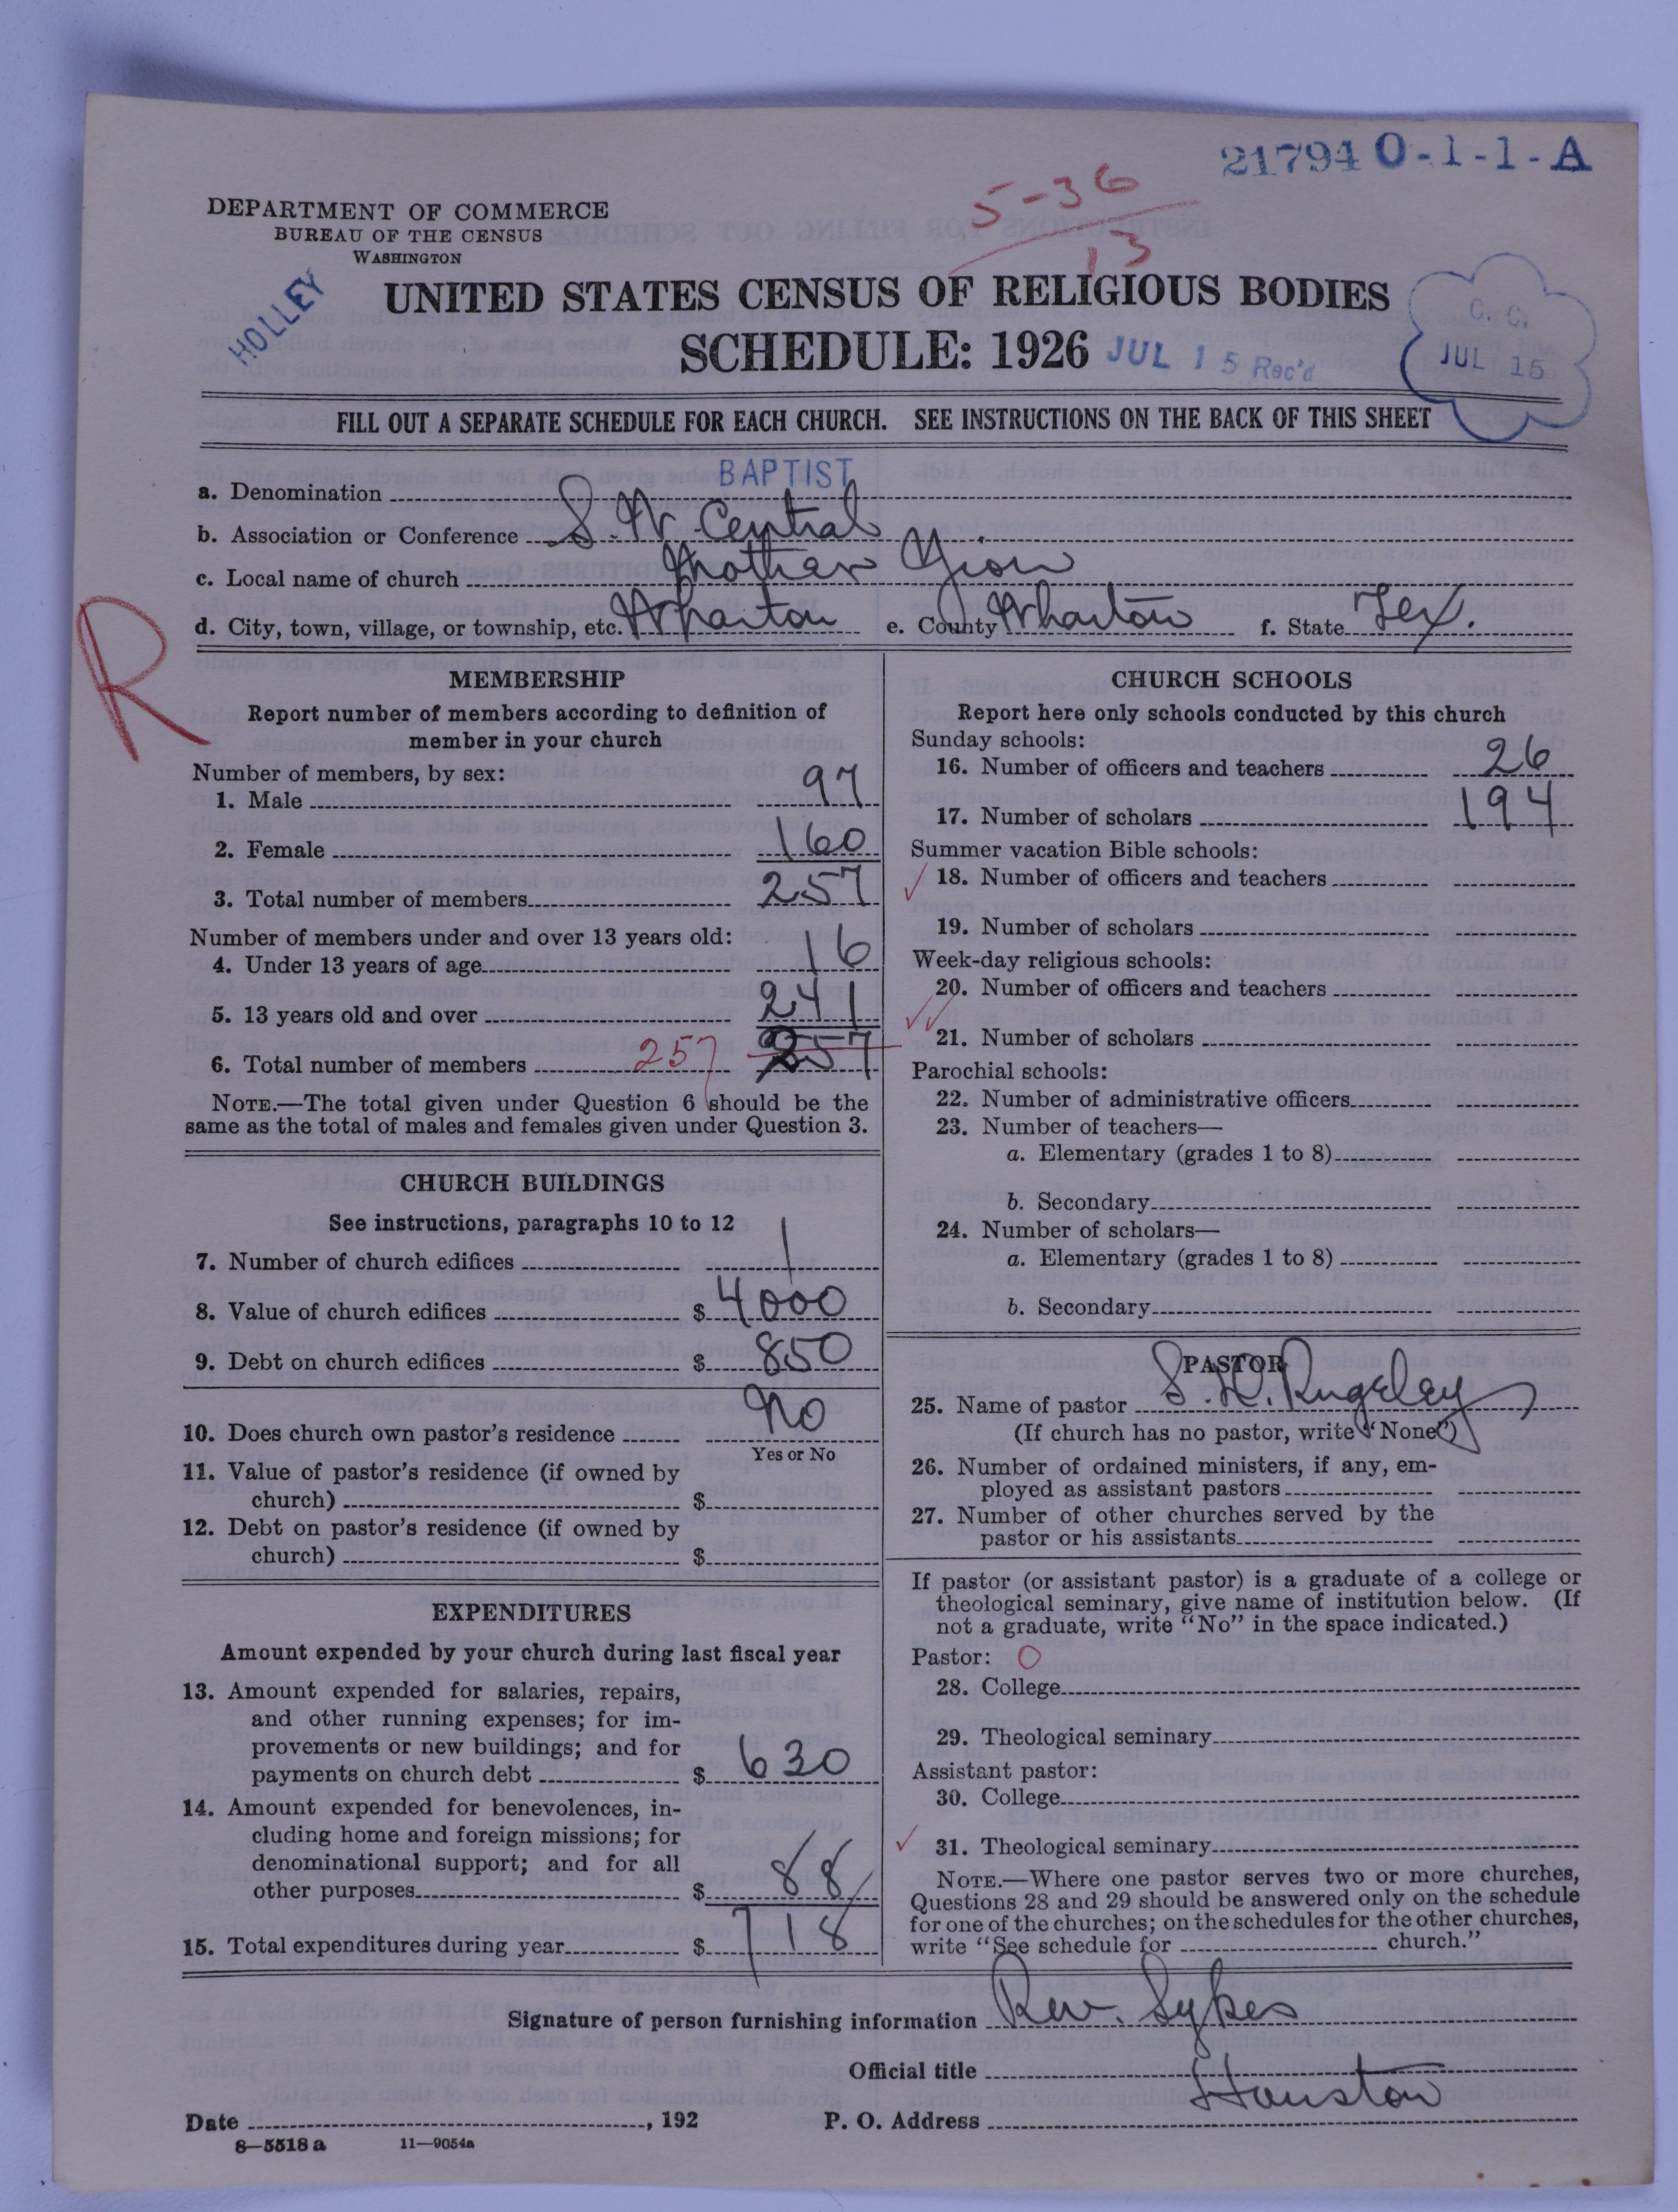 21794 0-1-1-A
5-36
13
DEPARTMENT OF COMMERCE
BUREAU OF THE CENSUS
WASHINGTON
HOLLEY
UNITED STATES CENSUS OF RELIGIOUS BODIES
SCHEDULE: 1926 JUL 15 Rec'd
C. C.
JUL 15
FILL OUT A SEPARATE SCHEDULE FOR EACH CHURCH. SEE INSTRUCTIONS ON THE BACK OF THIS SHEET
a. Denomination BAPTIST
b. Association or Conference S. W. Central
c. Local name of church Mother Zion
d. City, town, village, or township, etc. Wharton e. County Wharton f. State Tex.
R
MEMBERSHIP
Report number of members according to definition of
member in your church
Number of members, by sex:
1. Male 97
2. Female 160
3. Total number of members 257
Number of members under and over 13 years old:
4. Under 13 years of age 16
5. 13 years old and over 241
6. Total number of members 257 257
NOTE.—The total given under Question 6 should be the
same as the total of males and females given under Question 3.
CHURCH BUILDINGS
See instructions, paragraphs 10 to 12
7. Number of church edifices 1
8. Value of church edifices $ 4000
9. Debt on church edifices $ 850
10. Does church own pastor's residence No
Yes or No
11. Value of pastor's residence (if owned by
church) $
12. Debt on pastor's residence (if owned by
church) $
EXPENDITURES
Amount expended by your church during last fiscal year
13. Amount expended for salaries, repairs,
and other running expenses; for im-
provements or new buildings; and for
payments on church debt $ 630
14. Amount expended for benevolences, in-
cluding home and foreign missions; for
denominational support; and for all
other purposes $ 88
15. Total expenditures during year $ 718
CHURCH SCHOOLS
Report here only schools conducted by this church
Sunday schools:
16. Number of officers and teachers 26
17. Number of scholars 194
Summer vacation Bible schools:
18. Number of officers and teachers
19. Number of scholars
Week-day religious schools:
20. Number of officers and teachers
21. Number of scholars
Parochial schools:
22. Number of administrative officers
23. Number of teachers—
a. Elementary (grades 1 to 8)
b. Secondary
24. Number of scholars—
a. Elementary (grades 1 to 8)
b. Secondary
PASTOR
25. Name of pastor S. W. Rugeley
(If church has no pastor, write "None")
26. Number of ordained ministers, if any, em-
ployed as assistant pastors
27. Number of other churches served by the
pastor or his assistants
If pastor (or assistant pastor) is a graduate of a college or
theological seminary, give name of institution below. (If
not a graduate, write "No" in the space indicated.)
Pastor: O
28. College
29. Theological seminary
Assistant pastor:
30. College
31. Theological seminary
NOTE.—Where one pastor serves two or more churches,
Questions 28 and 29 should be answered only on the schedule
for one of the churches; on the schedules for the other churches,
write "See schedule for church."
Signature of person furnishing information Rev. Sykes
Official title
Date , 192 P. O. Address Houston
8—5518 a 11—9054a